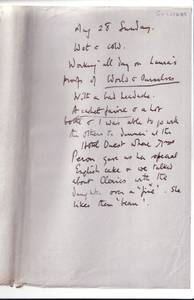 Aug 28 Sunday.
Wet & cold.
Working all day on Laura's
proofs of World & Ourselves
With a bad headache.
A cachet faivre & a hot
bottle & I was able to go with
the others to dinner at the
Hotel Ouest where Mme
Person gave us her special
English cake & we talked
about Clarics with the
daughter over a "fine". She
likes them "bien".